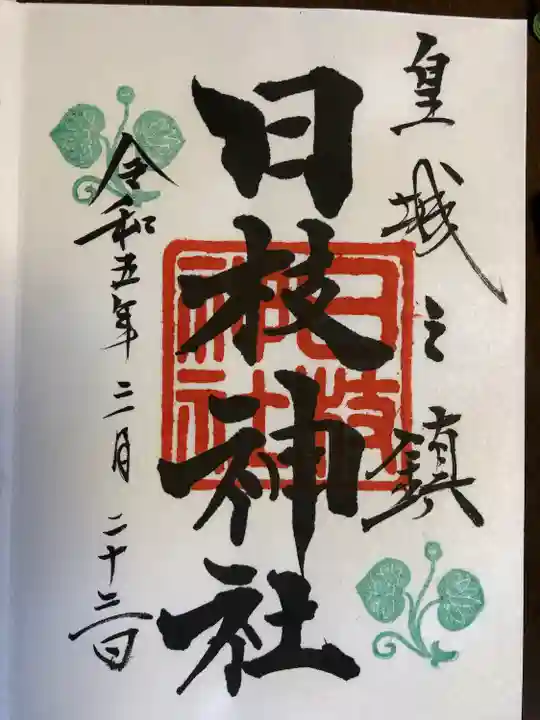 皇城之鎮
日枝神社
日枝神社
令和五年二月二十三日